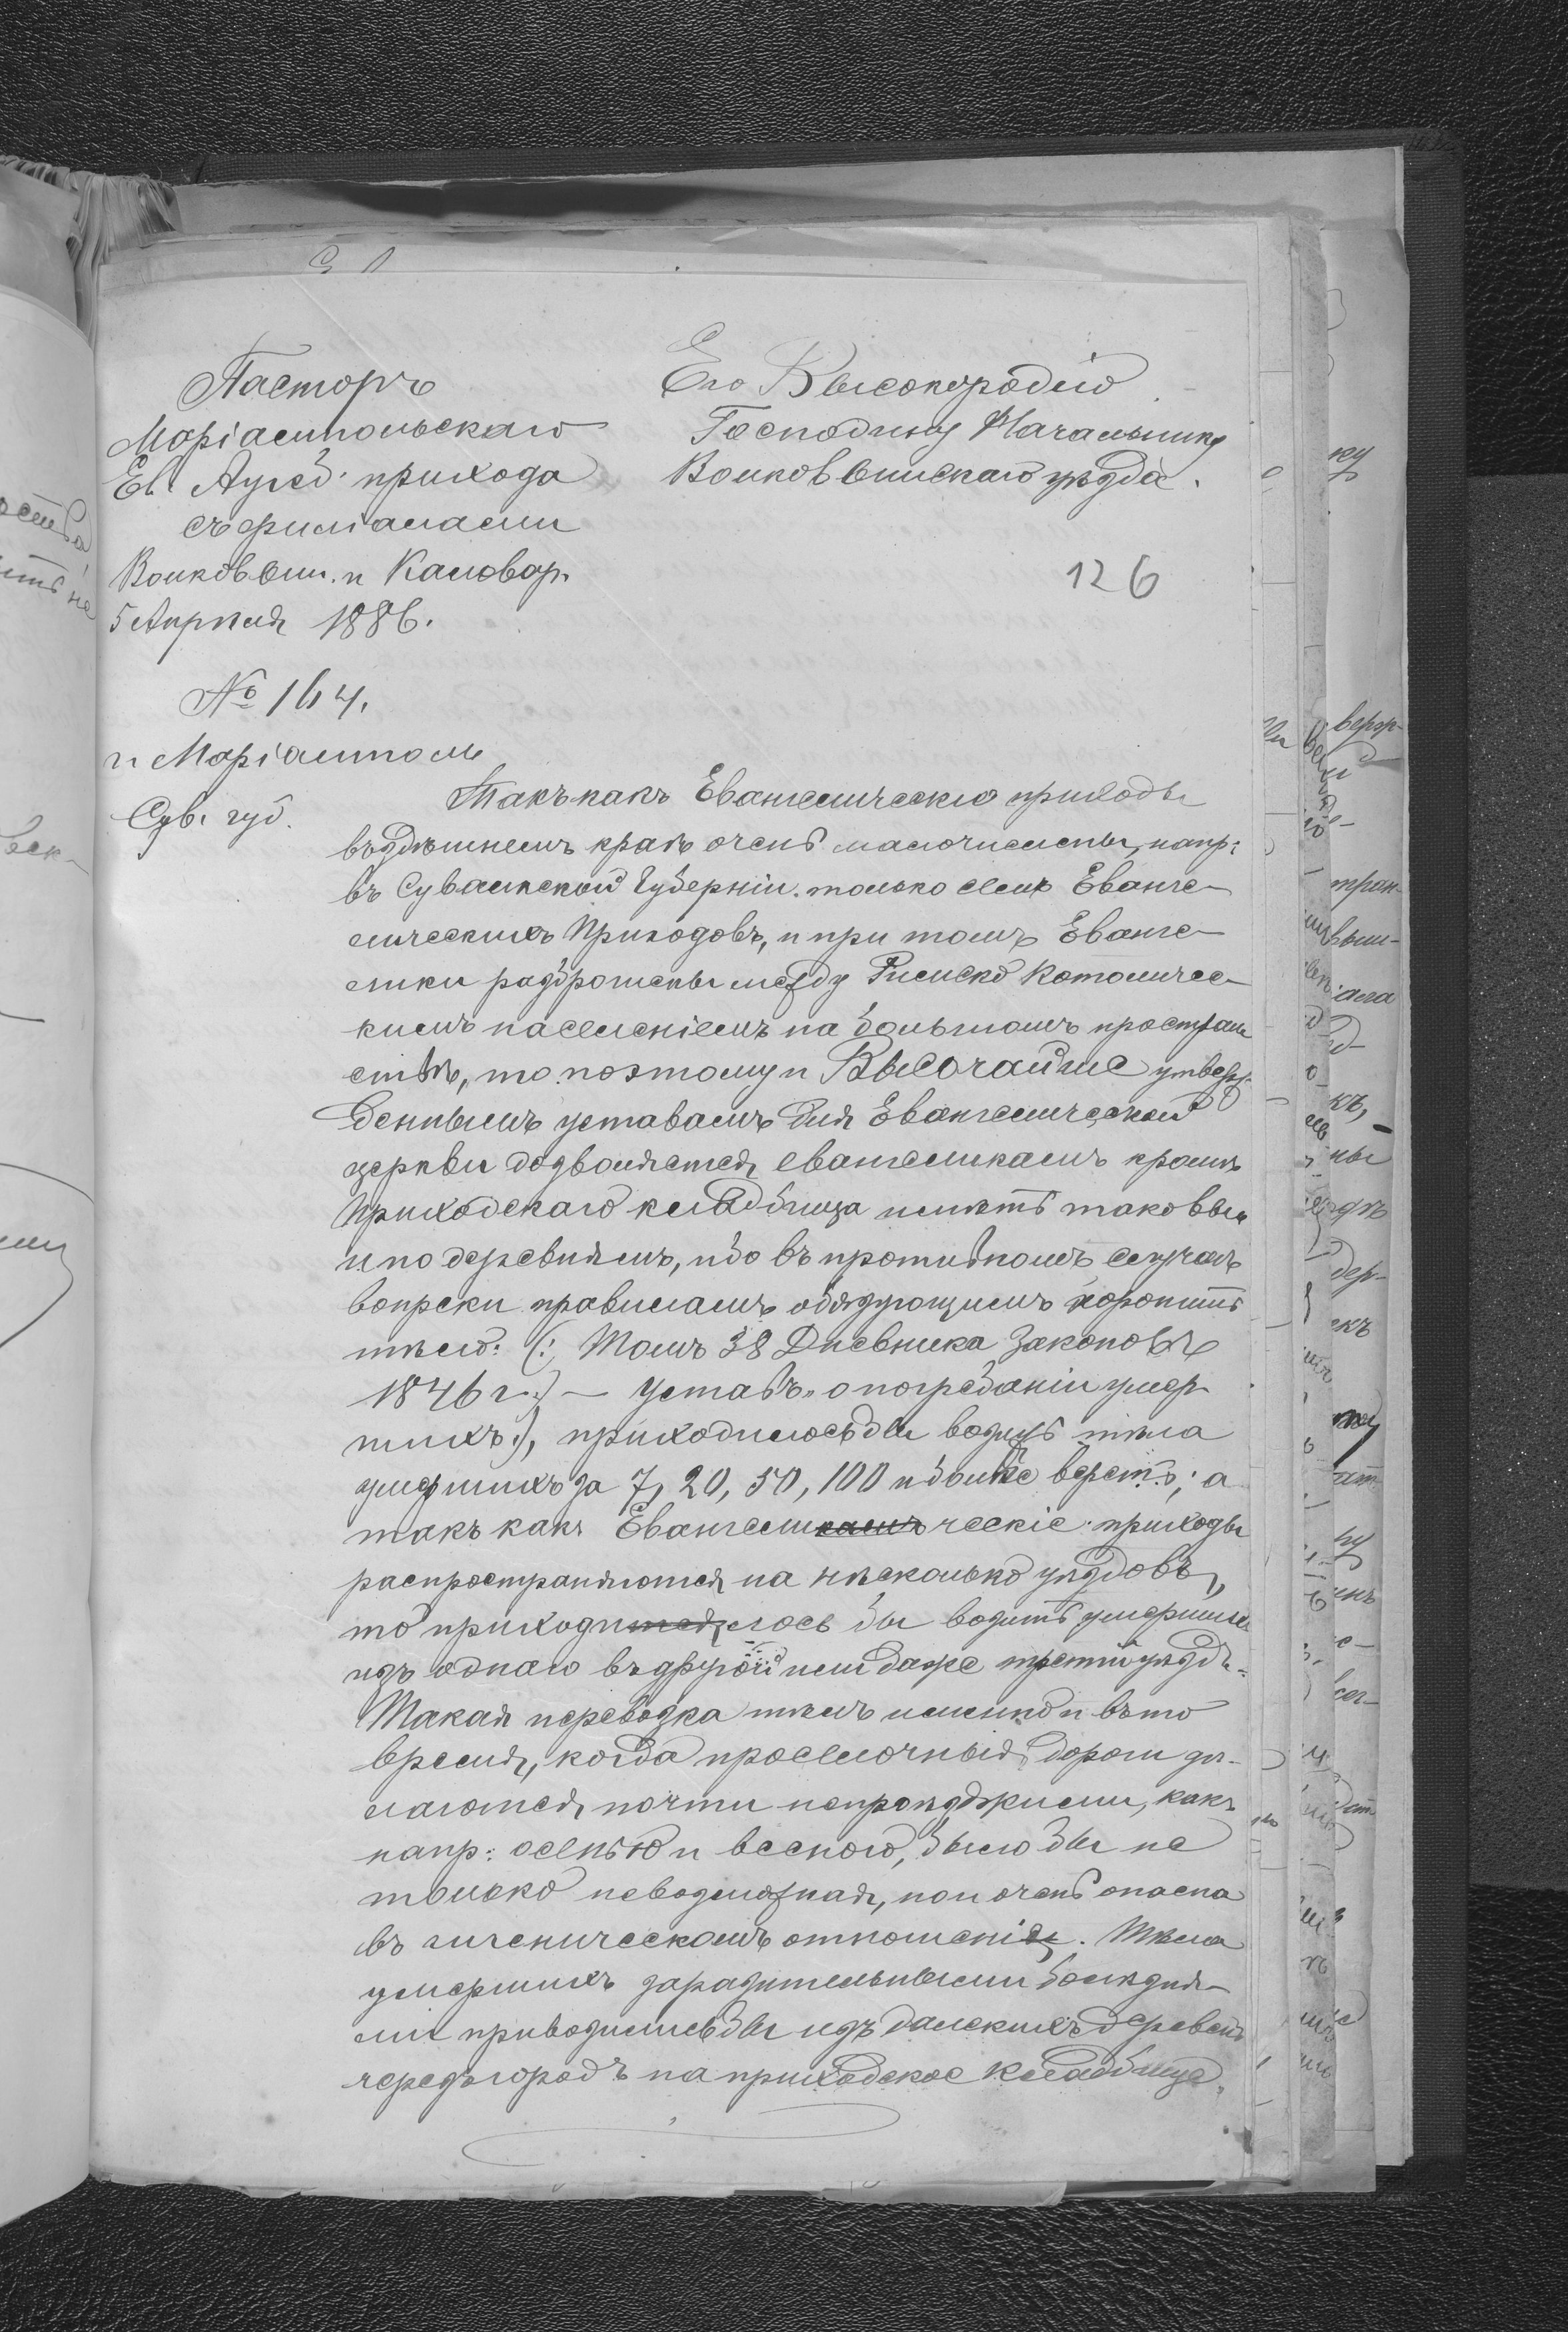 Пасторъ
Маріампольскаго
Ев. Аугсб. прихода
съ филіалами
Волковышк. и Кальвар.
5 Апрѣля 1886.
№ 164.
г. Маріамполь
Сув. губ.
Его Высокородію
Господину Начальнику
Волковышскаго уѣзда.
126
Такъ какъ Евангелическіе приходы
въ здѣшнемъ краѣ очень малочислены, напр:
въ Сувалкской Губерніи. только семь Еванге-
лическихъ Приходовъ, и при томъ Еванге-
лики разброшены между Римско Католичес-
кимъ населеніемъ на большомъ простран
ствѣ, то поэтому и Высочайше утверж-
деннымъ уставамъ для Евангелической
церкви дозволяется евангеликамъ кромѣ
Приходскаго кладбища имѣть таковыя
и по деревнямъ, ибо въ противномъ случаѣ
вопреки правиламъ обязующимъ хоронить
тѣло: (: Томъ 38 Дневника Законовъ
1846 г.) — Уставъ о погребаніи умер
шихъ.), приходилось бы возить тѣла
умершихъ за 7, 20, 50, 100 и болѣе верстъ; а
такъ какъ Евангеликамъ ческіе приходы
распространяются на нѣсколько уѣздовъ,
то приходится лось бы возить умершихъ
изъ однаго въ другой или даже третій уѣздъ.
Такая перевозка тѣлъ именно и въ то
время, когда проселочныя дороги дѣ-
лаются почти непроѣзджими, какъ
напр: осенью и весною, было бы не
только невозможная, но и очень опасна
въ гигеническомъ отношеніи. Тѣла
умершихъ заразительными болѣзня-
ми привозились бы изъ далекихъ деревень
чрезъ городъ на приходское кладбище.